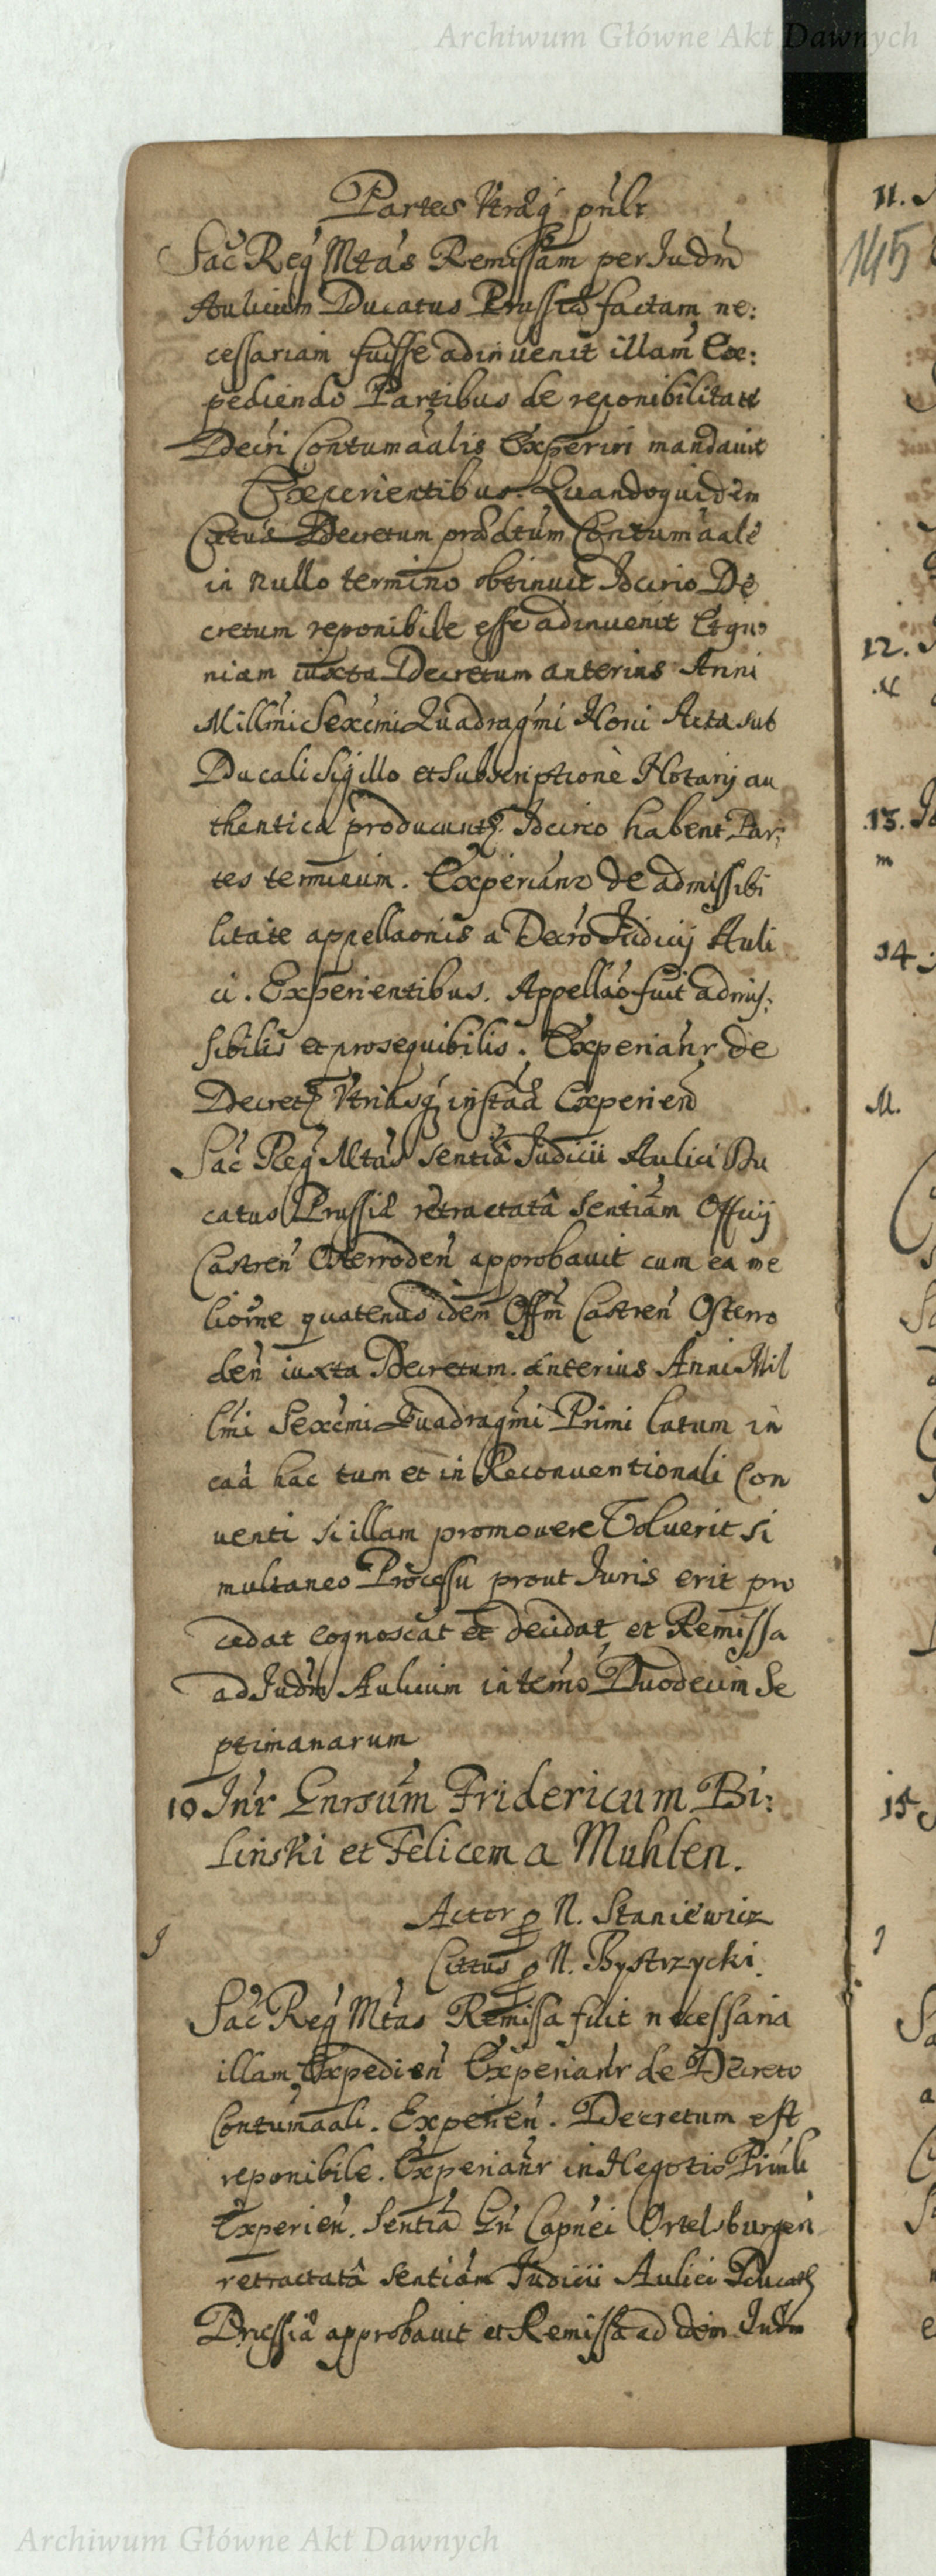 Archiwum Główne Akt Dawnych
Partes Vtraq́ pn̄lr
Sac̄ Reg̕ Mtas Remissam per Iudm̄
Aulicum Ducatus Prussiæ factam ne:
cessariam fuisse adinuenit illam Ex:
pediendo Partibus de reponibilitate
Decri Contumacialis Experiri mandauit
Experientibus. Quandoquidem
Cittus Decretum prædictum Contumaciale
in nullo termino obtinuit Idcirco De
cretum reponibile esse adinuenit Et quo
niam iuxta Decretum anterius Anni
Millm̄i Sexc̄mi Quadragm̄i Noni Acta sub
Ducali Sigillo et Subscriptione Notarij au
thentica producuntr Idcirco habent Par:
tes terminum. Experianr de admissibi
litate appellaonis a Decro Iudicij Auli
ci. Experientibus. Appellao fuit admis:
sibilis et prosequibilis. Experianr de
Decret Vtriusq́ instaā Experien̄
Sac̄ Reg̕ Mtas Sentiā Iudicii Aulici Du
catus Prussiæ retractatā Sentiam Officij
Castren̄ Osterroden̄ approbauit cum ea me
liorne quatenus idem Offm̄ Castren̄ Osterro
den̄ iuxta Decretum anterius Anni Mil
lm̄i Sexc̄mi Quadragm̄i Primi latum in
caā hac tum et in Reconuentionali Con
uenti si illam promouere Voluerit si
multaneo Processu prout Iuris erit pro
cedat cognoscat et decidat et Remissa
ad Iudm̄ Aulicum in termo Duodecim Se
ptimanarum
10 Inr Gnrsum Fridericum Bi:
linski et Felicem a Muhlen.
Actor p N. Staniewicz
J
Cittus p N. Bystrzycki.
Sac̄ Reg̕ Mtas Remissa fuit necessaria
illam Expedien̄ Experianr de Decreto
Contumaciali. Experien̄. Decretum est
reponibile. Experianr in Negotio Prinli
Experien̄. Sentiā Gn̄ Capnei Ortelsburgen̄
retractatā Sentiam Iudicii Aulici Ducatus
Prussiæ approbauit et Remissa ad idem Iudm̄
11.
145
12.
13.
m
14.
M.
15
J
Archiwum Główne Akt Dawnych